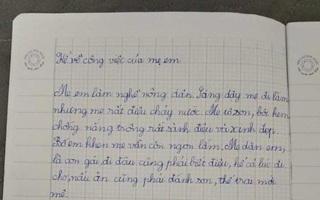 Kể về công việc của mẹ em
Mẹ em làm nghề nông dân. Sáng dậy mẹ đi làm
nhưng mẹ rất điệu chảy nước. Mẹ tô son, bôi kem
chống nắng trông rất sành điệu và xinh đẹp.
Bố em khen mẹ vẫn còn ngon lắm. Mẹ dặn em,
là con gái đi đâu cũng phải biết điệu, kể cả lúc đi
chợ, nấu ăn cũng phải đánh son, thế trai mới
mê.